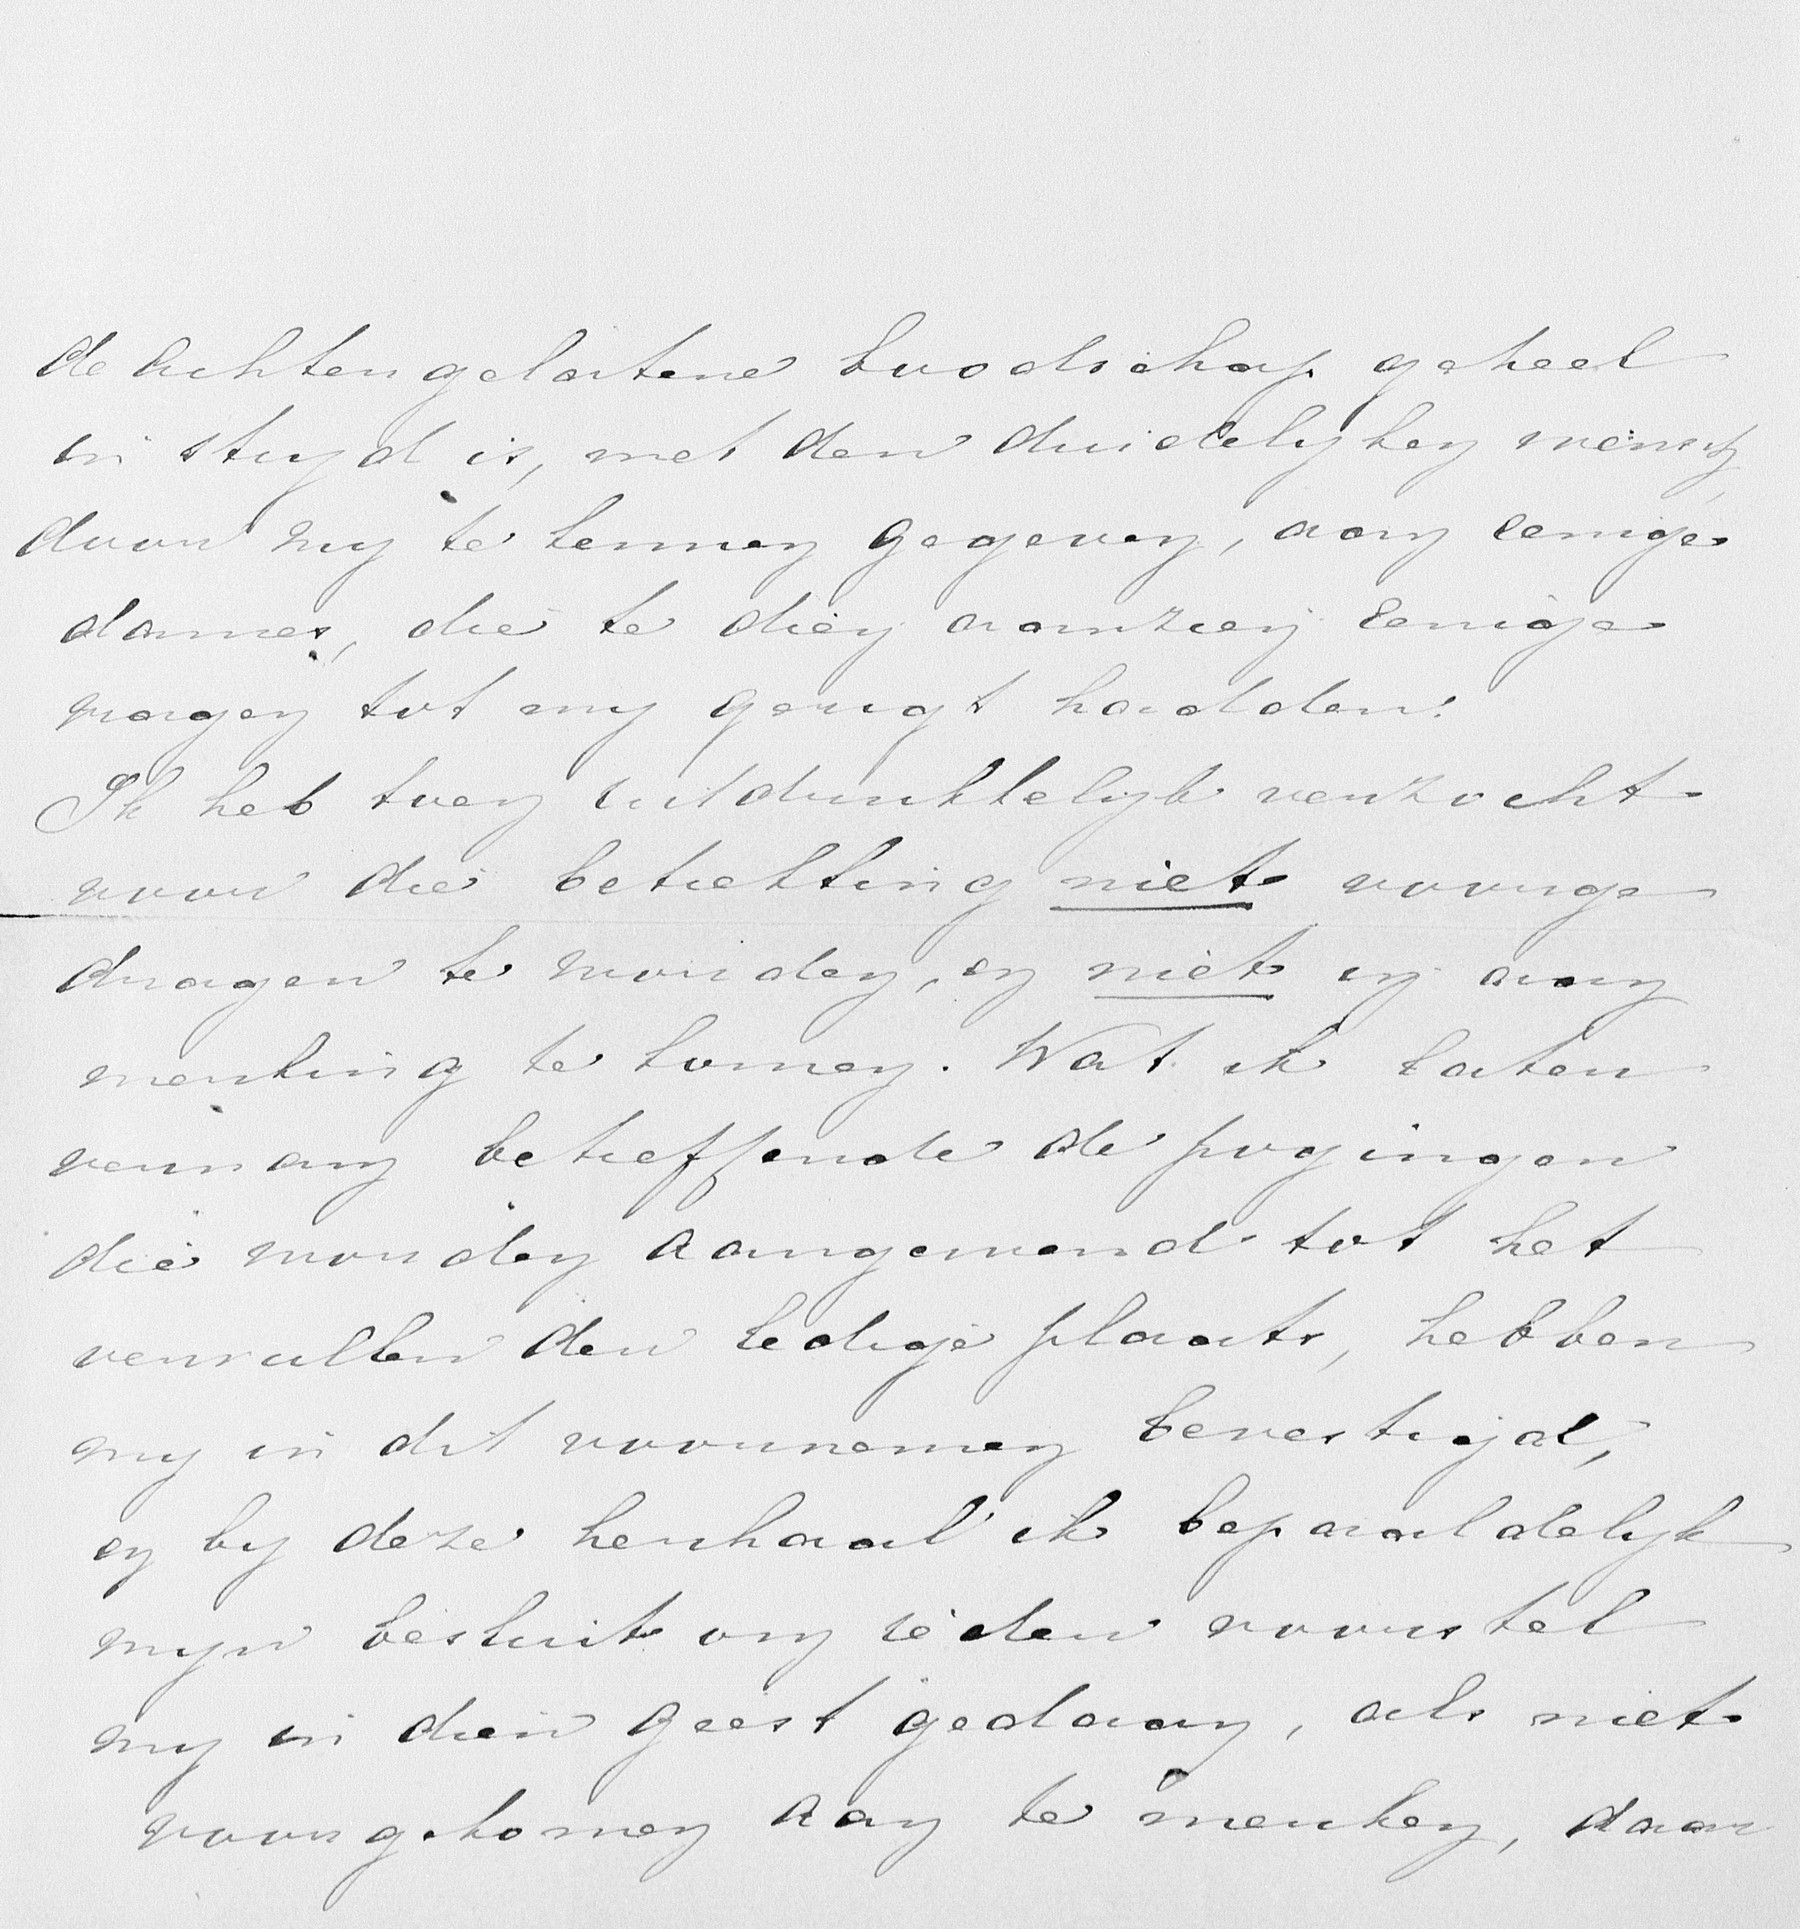 de achtergelatene boodschap geheel
in stryd is, met den duidelyken wensch,
door my te kennen gegeven, aan eenige
dames, die te dien aanzien eenige
vragen tot my gerigt hadden.
Ik heb toen uitdrukkelyk verzocht
voor die betrekking niet voorge
dragen te worden, en niet in aan
merking te komen. Wat ik later
vernam betreffende de pogingen
die worden aangewend tot het
vervullen der ledige plaats, hebben
my in dit voornemen bevestigd,
en by deze herhaal ik bepaaldelyk
myn besluit om ieder voorstel
my in dien geest gedaan, als niet
voorgekomen aan te merken, daar